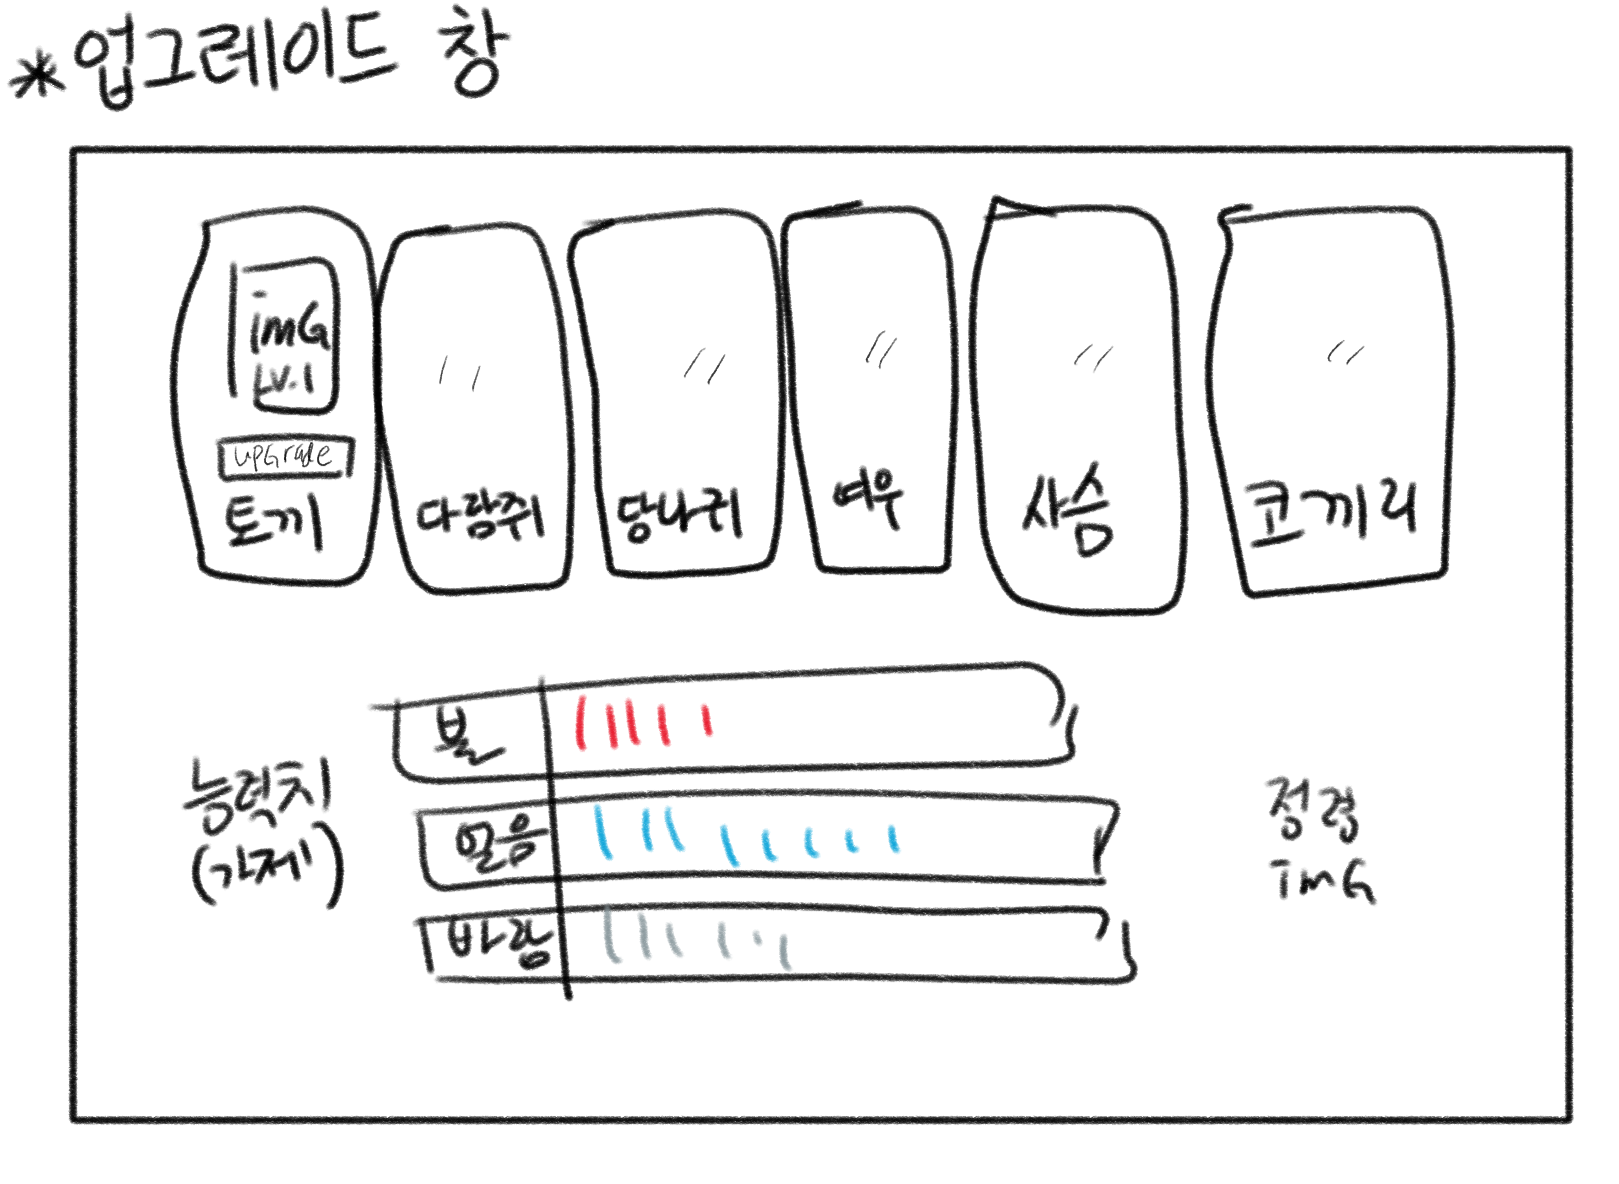 *업그레이드 창
imG
LV.1
UPGrade
토끼
다람쥐
당나귀
여우
사슴
코끼리
능력치
(가제)
불
얼음
바람
정령
imG